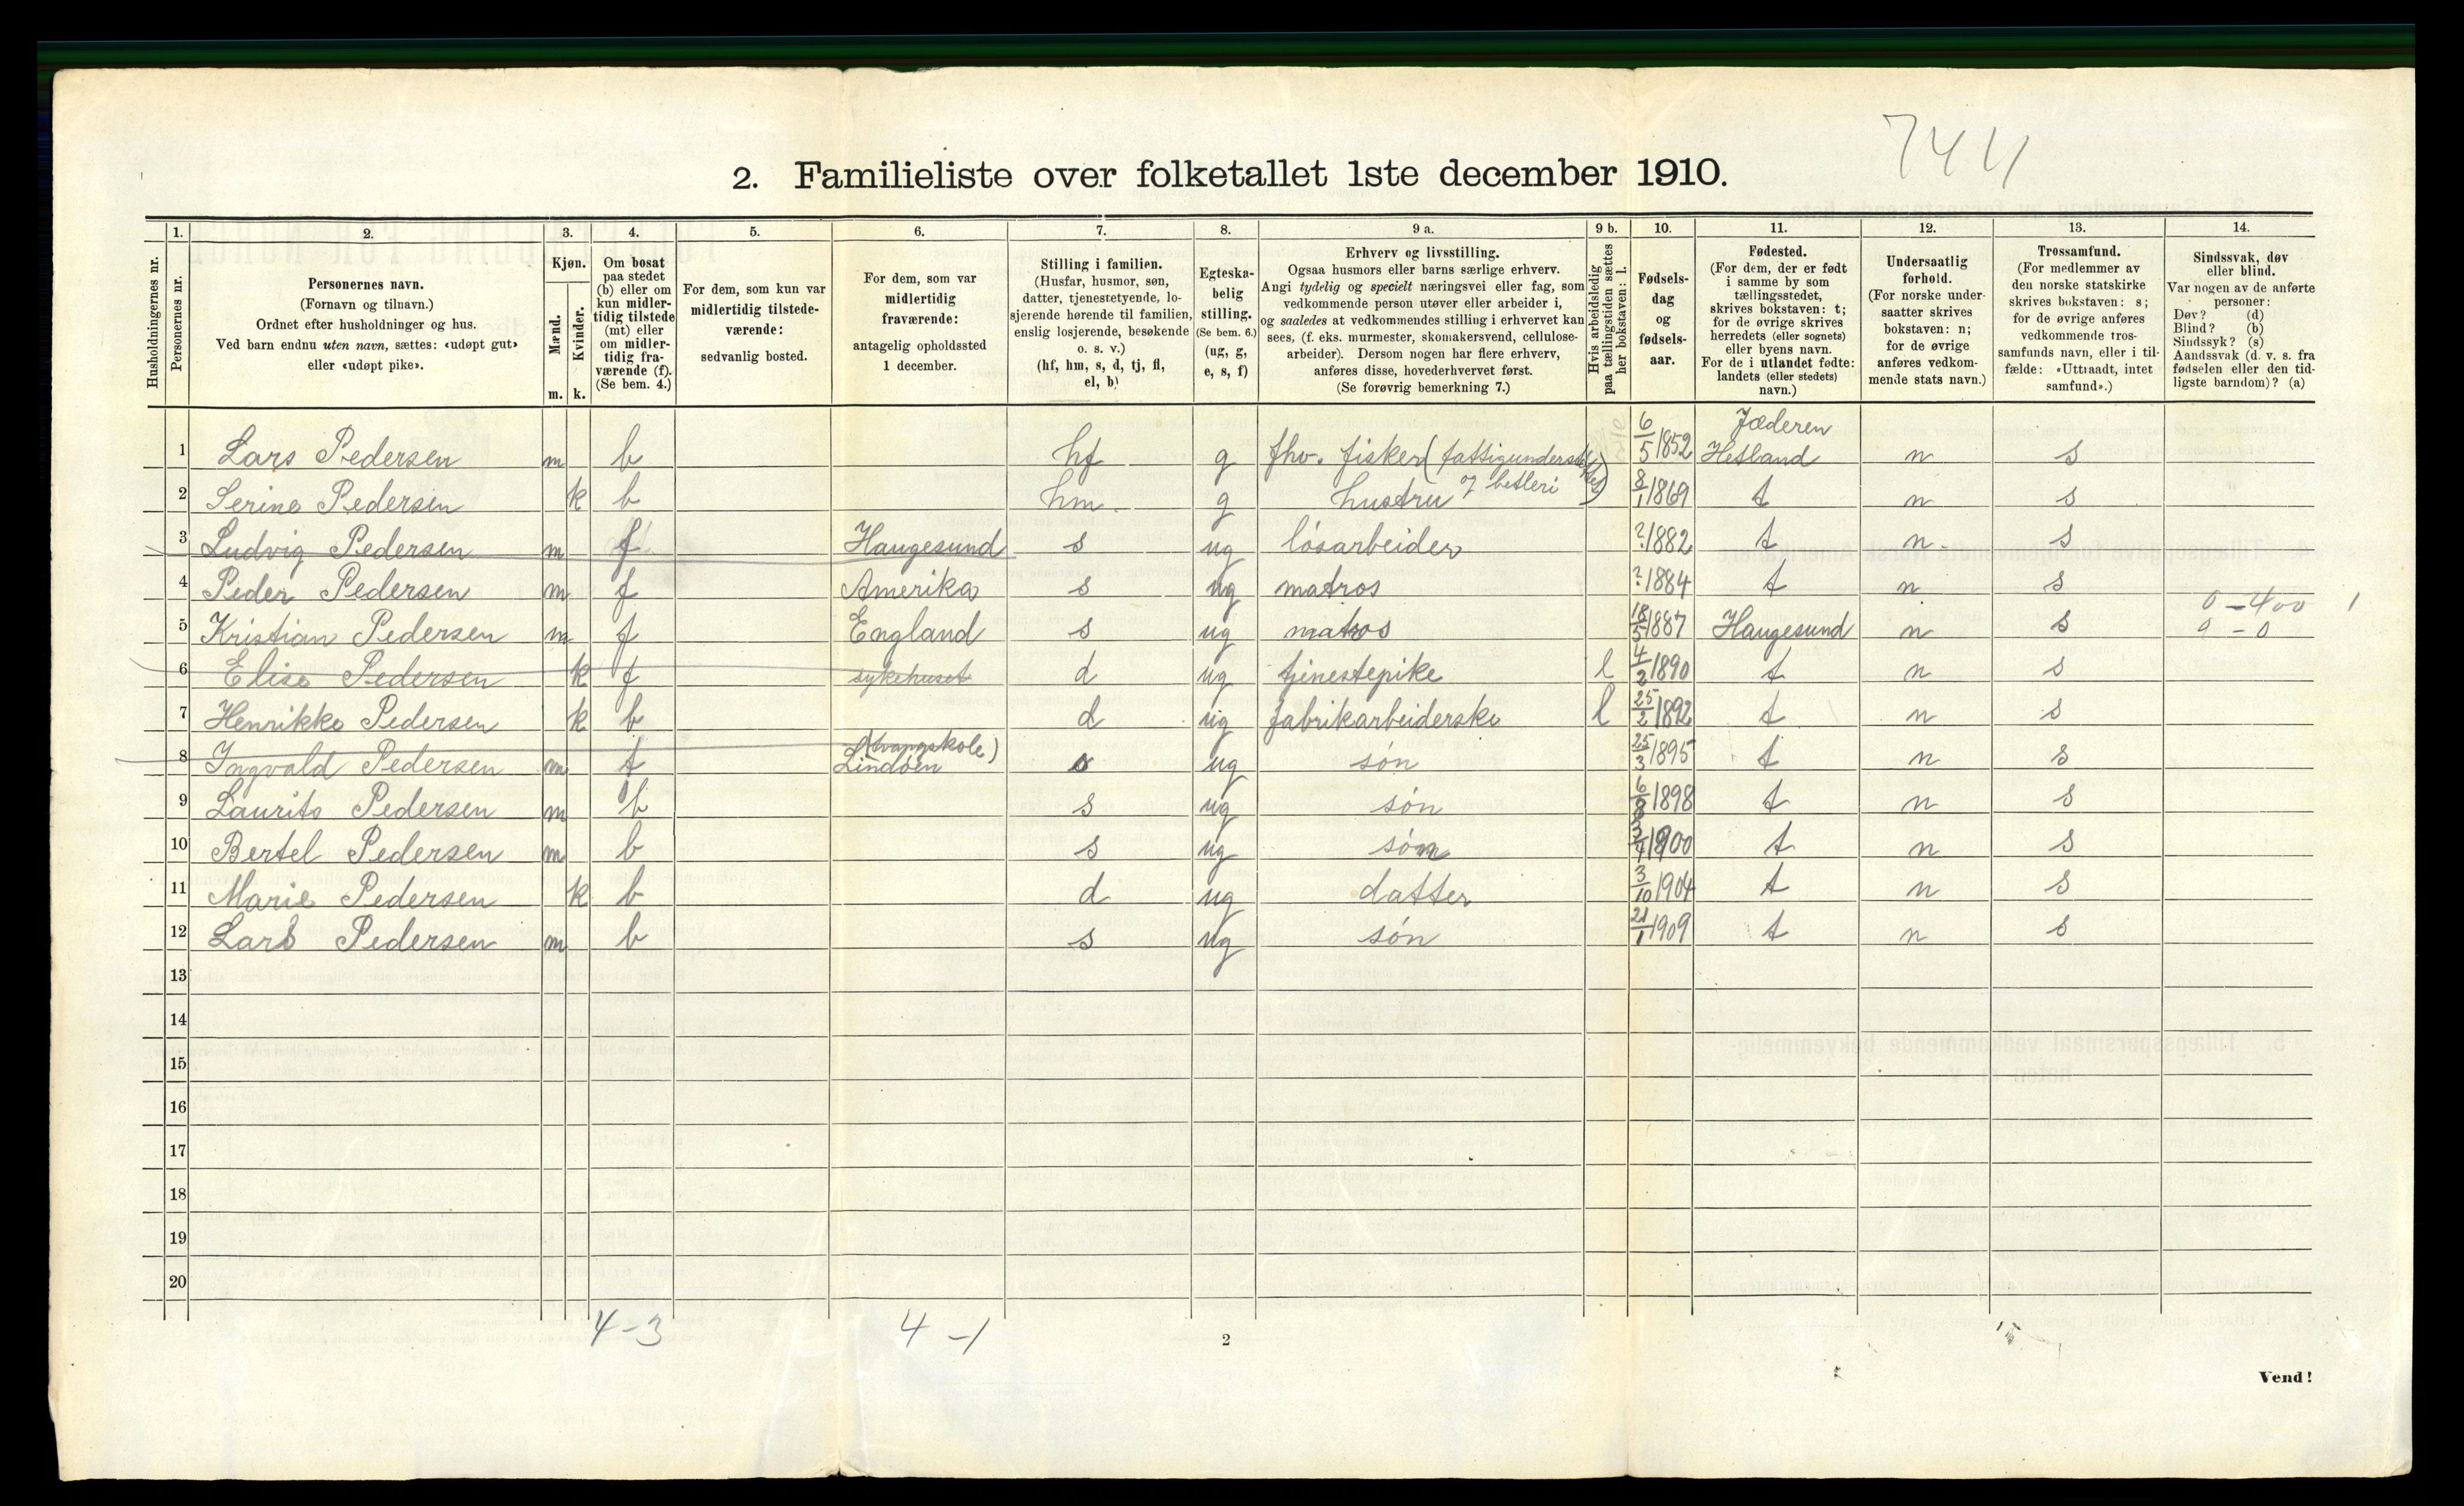 744
2. Familieliste over folketallet 1ste december 1910.
Husholdningernes nr.
1.
Personernes nr.
2.
Personernes navn.
(Fornavn og tilnavn.)
Ordnet efter husholdninger og hus.
Ved barn endnu uten navn, sættes: «udøpt gut»
eller «udøpt pike».
3.
Kjøn.
Mænd.
Kvinder.
m. k.
4.
Om bosat
paa stedet
(b) eller om
kun midler-
tidig tilstede
(mt) eller
om midler-
tidig fra-
værende (f).
(Se bem. 4.)
5.
For dem, som kun var
midlertidig tilstede-
værende:
sedvanlig bosted.
6.
For dem, som var
midlertidig
fraværende:
antagelig opholdssted
1 december.
7.
Stilling i familien.
(Husfar, husmor, søn,
datter, tjenestetyende, lo-
sjerende hørende til familien,
enslig losjerende, besøkende
o. s. v.)
(hf, hm, s, d, tj, fl,
el, b)
8.
Egteska-
belig
stilling.
(Se bem. 6.)
(ug, g,
e, s, f)
9 a.
Erhverv og livsstilling.
Ogsaa husmors eller barns særlige erhverv.
Angi tydelig og specielt næringsvei eller fag, som
vedkommende person utøver eller arbeider i,
og saaledes at vedkommendes stilling i erhvervet kan
sees, (f. eks. murmester, skomakersvend, cellulose-
arbeider). Dersom nogen har flere erhverv,
anføres disse, hovederhvervet først.
(Se forøvrig bemerkning 7.)
9 b.
Hvis arbeidsledig
paa tællingstiden sættes
her bokstaven: l.
10.
Fødsels-
dag
og
fødsels-
aar.
11.
Fødested.
(For dem, der er født
i samme by som
tællingsstedet,
skrives bokstaven: t;
for de øvrige skrives
herredets (eller sognets)
eller byens navn.
For de i utlandet fødte:
landets (eller stedets)
navn.)
12.
Undersaatlig
forhold.
(For norske under-
saatter skrives
bokstaven: n;
for de øvrige
anføres vedkom-
mende stats navn.)
13.
Trossamfund.
(For medlemmer av
den norske statskirke
skrives bokstaven: s;
for de øvrige anføres
vedkommende tros-
samfunds navn, eller i til-
fælde: «Uttraadt, intet
samfund».)
14.
Sindssvak, døv
eller blind.
Var nogen av de anførte
personer:
Døv? (d)
Blind? (b)
Sindssyk? (s)
Aandssvak (d. v. s. fra
fødselen eller den tid-
ligste barndom)? (a)
1 Lars Pedersen m b hf g fhv. fisker (fattigunderstøttet) 6/5 1852 Jæderen Hetland n s
og betleri
2 Serine Pedersen k b hm g hustru 8/1 1869 t n s
3 Ludvig Pedersen m f Haugesund s ug løsarbeider ? 1882 t n s
4 Peder Pedersen m f Amerika s ug matros ? 1884 t n s
0 - 400 1
5 Kristian Pedersen m f England s ug matros 18/5 1887 Haugesund n s 0 - 0
6 Elise Pedersen k f sykehuset d ug tjenestepike l 4/2 1890 t n s
7 Henrikke Pedersen k b d ug fabrikarbeiderske l 25/2 1892 t n s
8 Ingvald Pedersen m f (tvangskole) Lindøen s ug søn 25/3 1895 t n s
9 Laurits Pedersen m b s ug søn 6/8 1898 t n s
10 Bertel Pedersen m b s ug søn 3/4 1900 t n s
11 Marie Pedersen k b d ug datter 3/10 1904 t n s
12 Lars Pedersen m b s ug søn 21/1 1909 t n s
13
14
15
16
17
18
19
20
4 - 3
4 - 1
2
Vend!